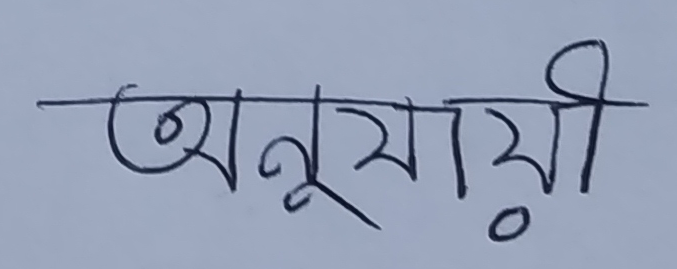 অনূযায়ী